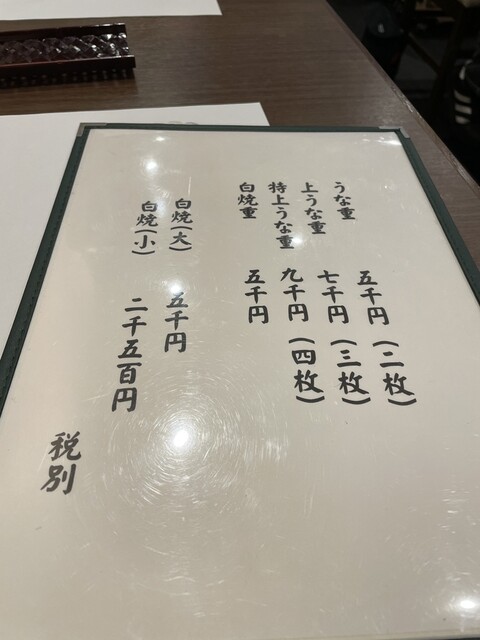 うな重 五千円(二枚)
上うな重 七千円(三枚)
特上うな重 九千円(四枚)
白焼重 五千円
白焼(大) 五千円
白焼(小) 二千五百円
税別